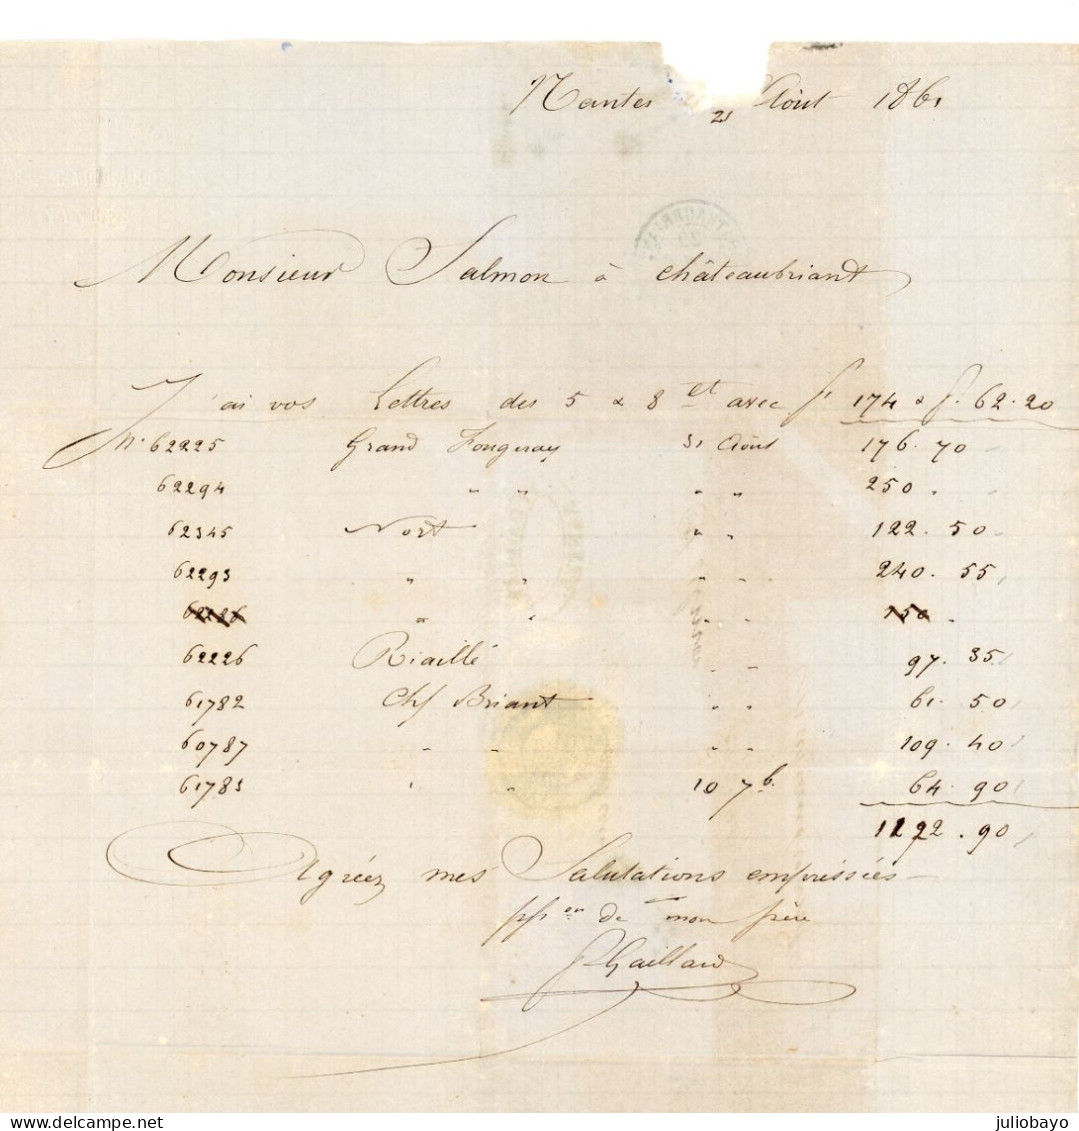 Nantes 21 Août 1861
Monsieur Salmon à Châteaubriant
J'ai vos Lettres des 5 & 8 ct avec f. 174 & f. 62.20
N° 62225 Grand Fougeray 31 Août 176.70
62294 " " " " 250.
62345 Nort " " 122.50
62293 " " " " 240.55
62226 " " " " 150.
62226 Riaillé " " 97.35
61782 Chf Briant " " 61.50
60787 " " " " 109.40
61783 " " 10 7b. 64.90
1122.90
Agréez mes Salutations empressées
ppon de mon frère
Gaillard
juliobayo